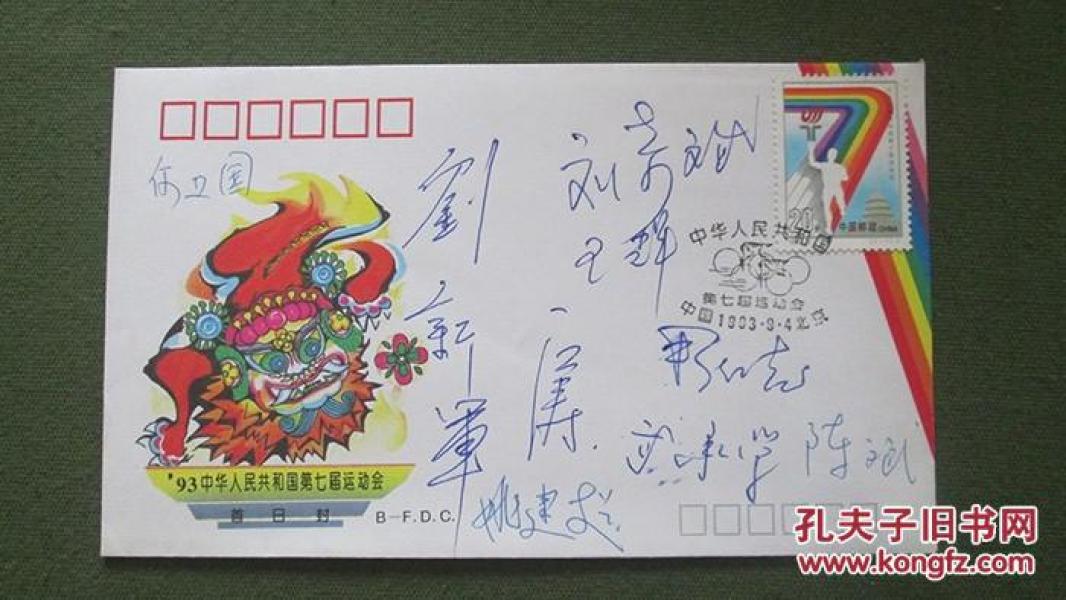 何卫国
劉新軍
刘志斌
王群
江涛
姚建
陈斌
20分
中国邮政 CHINA
中华人民共和国
第七届运动会
中国1993·9·4北京
'93中华人民共和国第七届运动会
首日封
B-F.D.C.
孔夫子旧书网
www.kongfz.com